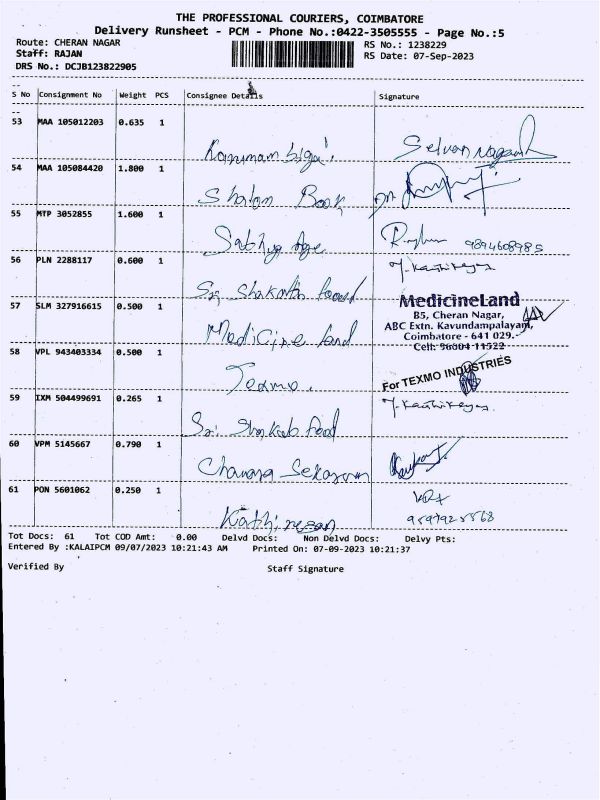 THE PROFESSIONAL COURIERS, COIMBATORE
Delivery Runsheet - PCM - Phone No.:0422-3505555 - Page No.:5
Route: CHERAN NAGAR
RS No.: 1238229
Staff: RAJAN
RS Date: 07-Sep-2023
DRS No.: DCJB123822905
S No Consignment No Weight PCS Consignee Details Signature
53 MAA 105012203 0.635 1
54 MAA 105084420 1.800 1
Shalom Book
55 MTP 3052855 1.600 1
9894608985
56 PLN 2288117 0.600 1
57 SLM 327916615 0.500 1
Medicine land
MedicineLand
B5, Cheran Nagar,
ABC Extn. Kavundampalayam,
Coimbatore - 641 029.
Cell: 96004 11522
58 VPL 943403334 0.500 1
Texmo.
For TEXMO INDUSTRIES
59 IXM 504499691 0.265 1
60 VPM 5145667 0.790 1
61 PON 5601062 0.250 1
Tot Docs: 61 Tot COD Amt: 0.00 Delvd Docs: Non Delvd Docs: Delvy Pts:
Entered By :KALAIPCM 09/07/2023 10:21:43 AM Printed On: 07-09-2023 10:21:37
Verified By Staff Signature